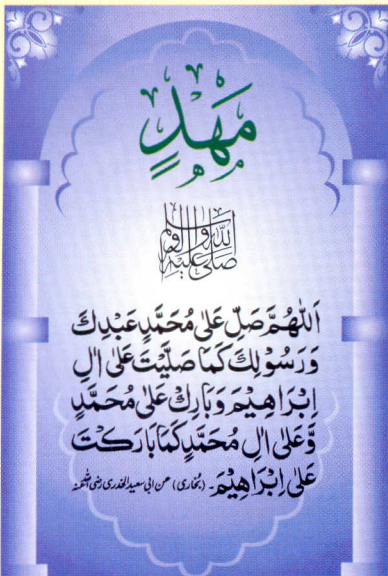 مَهْدٍ
صَلَّى اللّٰهُ عَلَيْهِ وَاٰلِهٖ وَسَلَّمَ
اَللّٰهُمَّ صَلِّ عَلٰى مُحَمَّدٍ عَبْدِكَ
وَرَسُوْلِكَ كَمَا صَلَّيْتَ عَلٰى اٰلِ
اِبْرَاهِيْمَ وَبَارِكْ عَلٰى مُحَمَّدٍ
وَّعَلٰى اٰلِ مُحَمَّدٍ كَمَا بَارَكْتَ
عَلٰى اِبْرَاهِيْمَ۔ (بخاری) عن ابی سعید الخدری رضی اللہ عنہ